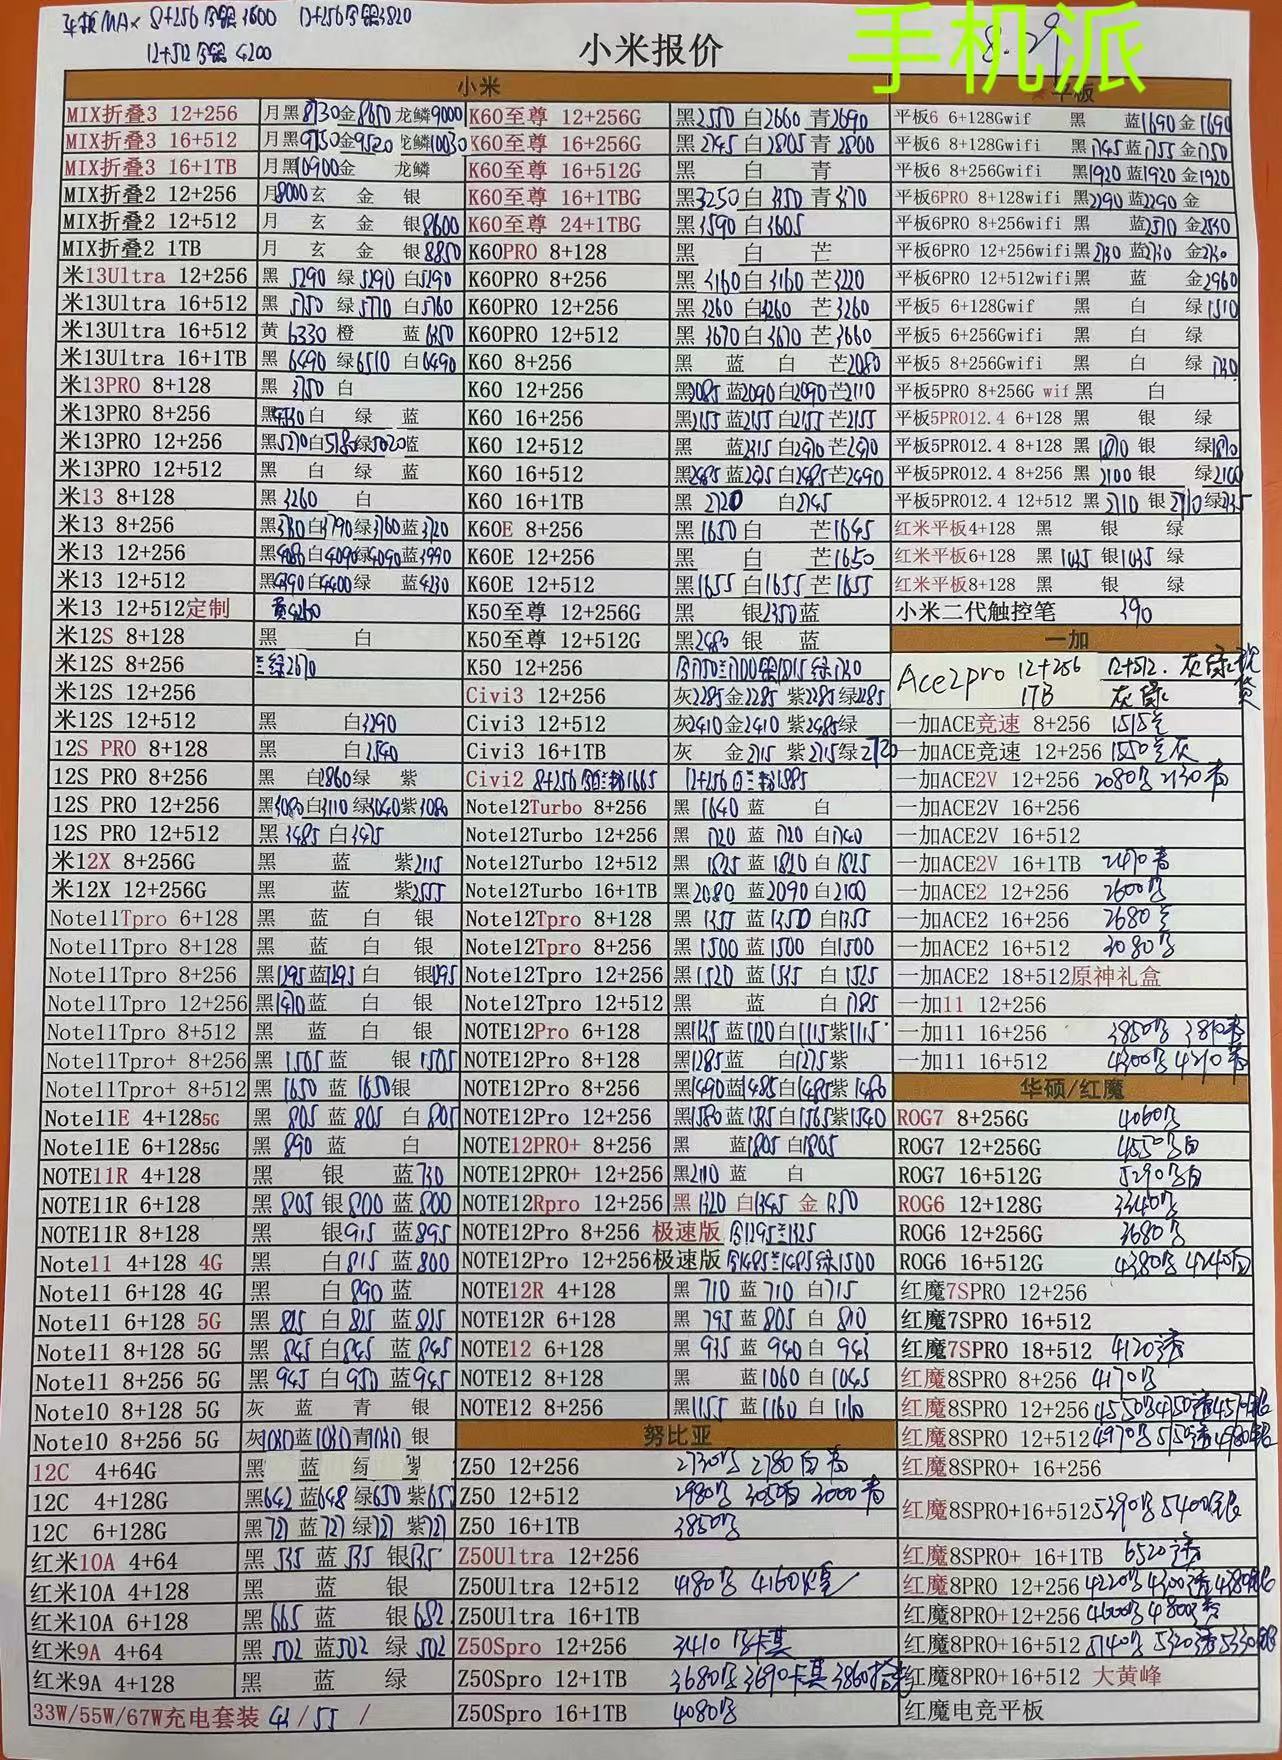 平板MAX 8+256 3600 12+256 3820
12+512 4200
小米报价
手机派
8.29
小米
平板
MIX折叠3 12+256 月黑8730金8650龙鳞9000
MIX折叠3 16+512 月黑9750金9520龙鳞10030
MIX折叠3 16+1TB 月黑10900金 龙鳞
MIX折叠2 12+256 月8000玄 金 银
MIX折叠2 12+512 月 玄 金 银8600
MIX折叠2 1TB 月 玄 金 银8850
米13Ultra 12+256 黑 5290 绿 5290 白5290
米13Ultra 16+512 黑 5750 绿 5770 白5760
米13Ultra 16+512 黄 6330 橙 蓝 6350
米13Ultra 16+1TB 黑 6490 绿6510 白6490
米13PRO 8+128 黑 3750 白
米13PRO 8+256 黑 白 绿 蓝
米13PRO 12+256 黑5270白5180绿5020蓝
米13PRO 12+512 黑 白 绿 蓝
米13 8+128 黑3260 白
米13 8+256 黑 白3790绿3760蓝3720
米13 12+256 黑4080白4090绿4090蓝3990
米13 12+512 黑4390白4400绿 蓝4230
米13 12+512定制
米12S 8+128 黑 白
米12S 8+256 绿2670
米12S 12+256
米12S 12+512 黑 白3290
12S PRO 8+128 黑 白2540
12S PRO 8+256 黑 白2860绿 紫
12S PRO 12+256 黑3080白3110绿3040紫3080
12S PRO 12+512 黑3485 白3475
米12X 8+256G 黑 蓝 紫2115
米12X 12+256G 黑 蓝 紫2555
Note11Tpro 6+128 黑 蓝 白 银
Note11Tpro 8+128 黑 蓝 白 银
Note11Tpro 8+256 黑1295蓝1295白 银1295
Note11Tpro 12+256 黑1470蓝 白 银
Note11Tpro 8+512 黑 蓝 白 银
Note11Tpro+ 8+256 黑 1505 蓝 银 1505
Note11Tpro+ 8+512 黑 1650 蓝 1650银
Note11E 4+1285G 黑 805 蓝 805 白 805
Note11E 6+1285G 黑 890 蓝 白
NOTE11R 4+128 黑 银 蓝730
NOTE11R 6+128 黑 805 银 800 蓝 800
NOTE11R 8+128 黑 银915 蓝 895
Note11 4+128 4G 黑 白815 蓝 800
Note11 6+128 4G 黑 白890 蓝
Note11 6+128 5G 黑 815 白 815 蓝 825
Note11 8+128 5G 黑 845 白845 蓝 845
Note11 8+256 5G 黑 945 白 950 蓝945
Note10 8+128 5G 灰 蓝 青 银
Note10 8+256 5G 灰1030蓝1030青1030 银
12C 4+64G 黑 蓝 绿 紫
12C 4+128G 黑642蓝648 绿650 紫655
12C 6+128G 黑727 蓝727 绿727 紫727
红米10A 4+64 黑 535 蓝 535 银535
红米10A 4+128 黑 蓝 银
红米10A 6+128 黑 665 蓝 银682
红米9A 4+64 黑 502 蓝502 绿 502
红米9A 4+128 黑 蓝 绿
33W/55W/67W充电套装 41/55 /
K60至尊 12+256G 黑2550白2660青2690
K60至尊 16+256G 黑2745白2805青2800
K60至尊 16+512G 黑 白 青
K60至尊 16+1TBG 黑3250白3350青3370
K60至尊 24+1TBG 黑3590白3605
K60PRO 8+128 黑 白 芒
K60PRO 8+256 黑3160白3160芒3220
K60PRO 12+256 黑3260白3260芒3260
K60PRO 12+512 黑3670白3670芒3660
K60 8+256 黑 蓝 白 芒2080
K60 12+256 黑2085蓝2090白2090芒2110
K60 16+256 黑2155蓝2155白2155芒2155
K60 12+512 黑 蓝2315白2470芒2470
K60 16+512 黑2485蓝2475白2485芒2490
K60 16+1TB 黑 2720 白2745
K60E 8+256 黑1650白 芒1645
K60E 12+256 黑 白 芒1650
K60E 12+512 黑1655白1655芒1655
K50至尊 12+256G 黑 银2350蓝
K50至尊 12+512G 黑2480 银 蓝
K50 12+256
Civi3 12+256 灰2285金2285 紫2285绿2285
Civi3 12+512 灰2410金2410 紫2485绿
Civi3 16+1TB 灰 金2715 紫2715绿2720
Civi2 8+256 1665 12+256 1885
Note12Turbo 8+256 黑 1640 蓝 白
Note12Turbo 12+256 黑 1720 蓝 1720 白1740
Note12Turbo 12+512 黑 1825 蓝 1820 白1825
Note12Turbo 16+1TB 黑2080 蓝2090白2100
Note12Tpro 8+128 黑 1355 蓝1350 白1355
Note12Tpro 8+256 黑1500 蓝1500 白1500
Note12Tpro 12+256 黑1520 蓝1545 白1525
Note12Tpro 12+512 黑 蓝 白1785
NOTE12Pro 6+128 黑1145蓝1120白1115紫1115
NOTE12Pro 8+128 黑1285蓝 白1275紫
NOTE12Pro 8+256 黑1490蓝1485白1485紫1480
NOTE12Pro 12+256 黑1580蓝1535白1565紫1540
NOTE12PRO+ 8+256 黑 蓝1805 白1805
NOTE12PRO+ 12+256 黑2110蓝 白
NOTE12Rpro 12+256 黑1320 白1345 金 1350
NOTE12Pro 8+256 极速版
NOTE12Pro 12+256极速版 绿1500
NOTE12R 4+128 黑 710 蓝 710 白715
NOTE12R 6+128 黑 795 蓝805 白 810
NOTE12 6+128 黑 935 蓝 940 白 943
NOTE12 8+128 黑 蓝1060 白1045
NOTE12 8+256 黑1155 蓝1160 白 1160
努比亚
Z50 12+256 2730黑 2780白青
Z50 12+512 2980黑 3050白 3000青
Z50 16+1TB 3850黑
Z50Ultra 12+256
Z50Ultra 12+512 4180黑 4160
Z50Ultra 16+1TB
Z50Spro 12+256 3410黑卡其
Z50Spro 12+1TB 3680黑 3690卡其 3860
Z50Spro 16+1TB 4080黑
平板6 6+128Gwif 黑 蓝1690金1690
平板6 8+128Gwifi 黑1745蓝1755金1750
平板6 8+256Gwifi 黑1920蓝1920 金1920
平板6PRO 8+128wifi 黑2290蓝2290金
平板6PRO 8+256wifi 黑 蓝2510 金2530
平板6PRO 12+256wifi 黑2730 蓝2730 金2730
平板6PRO 12+512wifi 黑 蓝 金2960
平板5 6+128Gwif 黑 白 绿1510
平板5 6+256Gwifi 黑 白 绿
平板5 8+256Gwifi 黑 白 绿1730
平板5PRO 8+256G wif 黑 白
平板5PRO12.4 6+128 黑 银 绿
平板5PRO12.4 8+128 黑 1870 银 绿1870
平板5PRO12.4 8+256 黑 2100银 绿2100
平板5PRO12.4 12+512 黑 2710 银 2710绿
红米平板4+128 黑 银 绿
红米平板6+128 黑 1035 银1035 绿
红米平板8+128 黑 银 绿
小米二代触控笔 390
一加
Ace2pro 12+256 12+512. 灰绿现货
1TB 灰绿
一加ACE竞速 8+256 1515
一加ACE竞速 12+256 1550
一加ACE2V 12+256 2080黑 2130青
一加ACE2V 16+256
一加ACE2V 16+512
一加ACE2V 16+1TB 2470青
一加ACE2 12+256 2600黑
一加ACE2 16+256 2680
一加ACE2 16+512 3080黑
一加ACE2 18+512原神礼盒
一加11 12+256
一加11 16+256 3850黑 3810青
一加11 16+512 4300黑 4210青
华硕/红魔
ROG7 8+256G 4060黑
ROG7 12+256G 4550黑白
ROG7 16+512G 5290黑白
ROG6 12+128G 3340黑
ROG6 12+256G 3680黑
ROG6 16+512G 4380黑 4240白
红魔7SPRO 12+256
红魔7SPRO 16+512
红魔7SPRO 18+512 4120透
红魔8SPRO 8+256 4170黑
红魔8SPRO 12+256 4550黑4750透4570银
红魔8SPRO 12+512 4970黑5150透4980银
红魔8SPRO+ 16+256
红魔8SPRO+16+512 5390黑 5400银
红魔8SPRO+ 16+1TB 6520透
红魔8PRO 12+256 4220黑4300透4380银
红魔8PRO+12+256 4600黑 4800透
红魔8PRO+16+512 5140黑 5320透5330银
红魔8PRO+16+512 大黄峰
红魔电竞平板